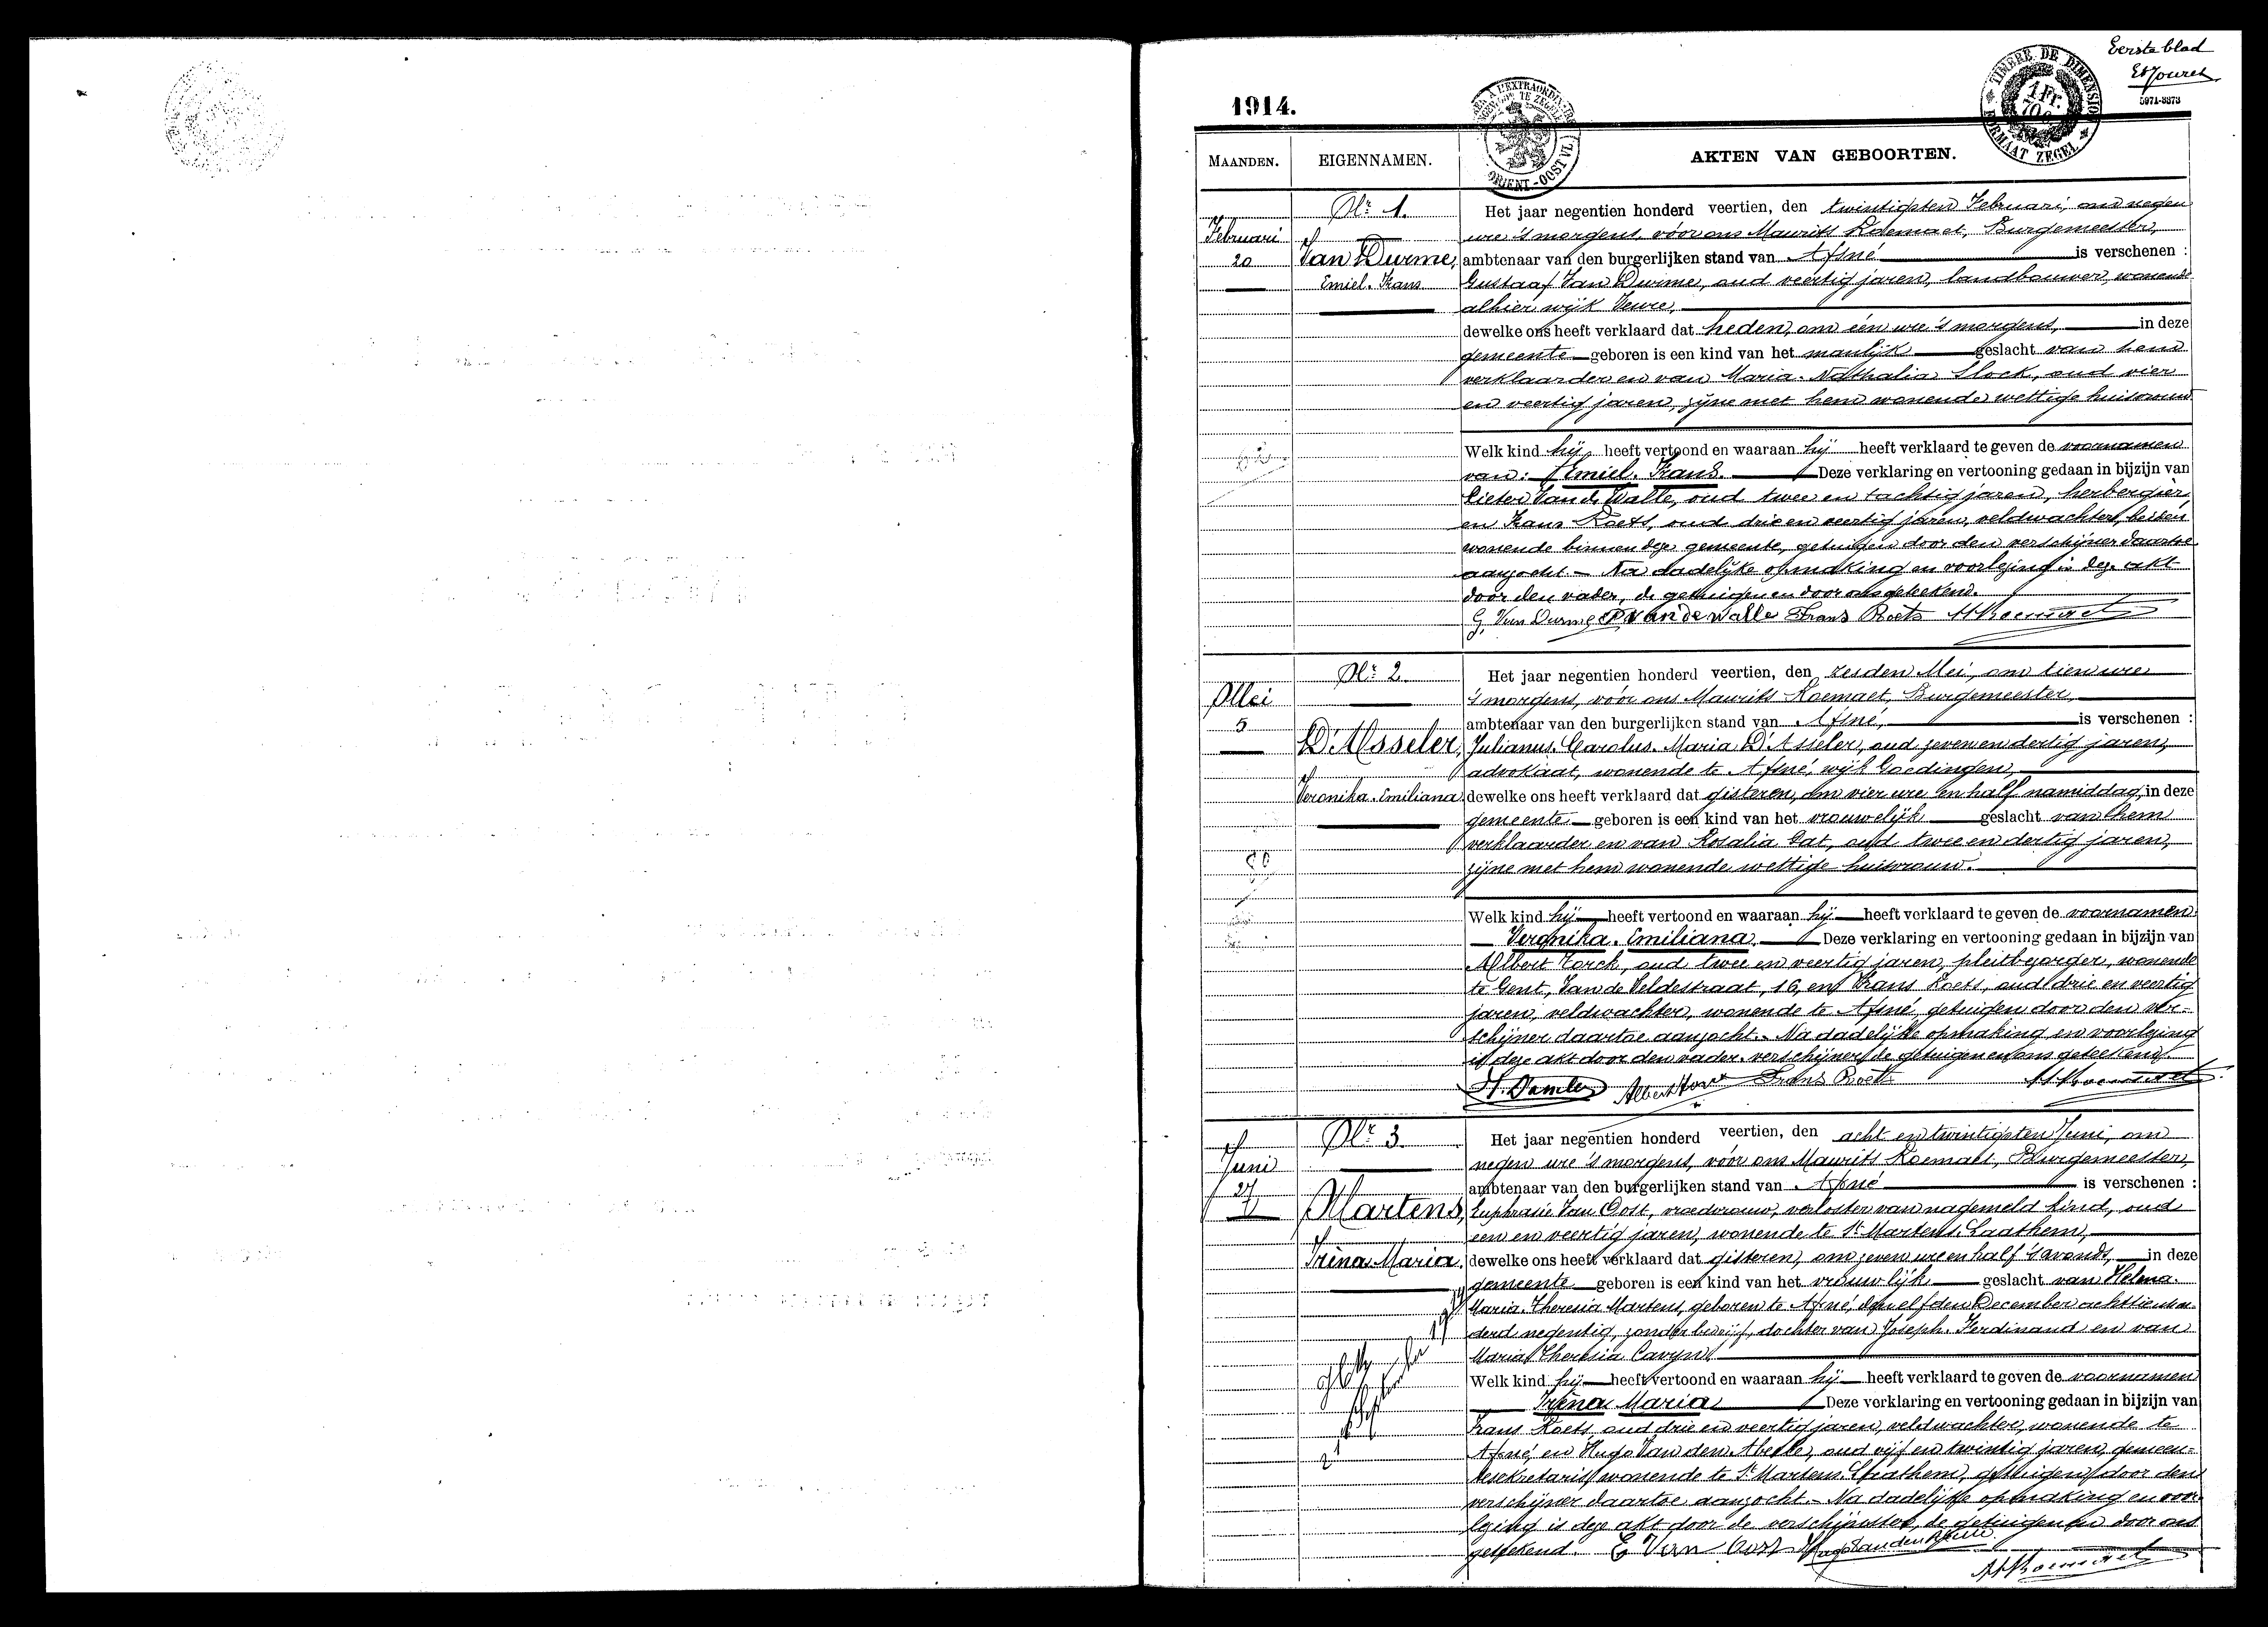 Eerste blad
1914.
5971-3373
TIMBRE DE DIMENSION
1 Fr.
FORMAAT ZEGEL
MAANDEN.
EIGENNAMEN.
AKTEN VAN GEBOORTEN.
Nr. 1.
Februari
20
Van Durme,
Emiel. Frans
Het jaar negentien honderd veertien, den twintigsten Februari, om negen
ure 's morgens, vóór ons Maurits Roemaet, Burgemeester,
ambtenaar van den burgerlijken stand van Afsné is verschenen :
Gustaaf Van Durme, oud veertig jaren, landbouwer, wonende
alhier wijk Veure,
dewelke ons heeft verklaard dat heden, om één ure 's morgens, in deze
gemeente geboren is een kind van het manlijk geslacht van hem
verklaarder en van Maria. Nathalia Slock, oud vier
en veertig jaren, zijne met hem wonende wettige huisvrouw.
Welk kind hij heeft vertoond en waaraan hij heeft verklaard te geven de voornamen
van: Emiel. Frans. Deze verklaring en vertooning gedaan in bijzijn van
Pieter Van de Walle, oud twee en tachtig jaren, herbergier,
en Frans Roets, oud drie en veertig jaren, veldwachter, beiden
wonende binnen deze gemeente, getuigen door den verschijner daartoe
aanzocht. - Na dadelijke opmaking en voorlezing is deze akt
door den vader, de getuigen en door ons geteekend.
G. Van Durme P Van de Walle Frans Roets M Roemaet
Nr. 2
Mei
5
D'Asseler,
Veronika. Emiliana.
Het jaar negentien honderd veertien, den zesden Mei, om tien ure
's morgens, vóór ons Maurits Roemaet, Burgemeester,
ambtenaar van den burgerlijken stand van Afsné, is verschenen :
Julianus. Carolus. Maria D'Asseler, oud zeven en dertig jaren,
advokaat, wonende te Afsné, wijk Goedingen,
dewelke ons heeft verklaard dat gisteren, om vier ure en half namiddag, in deze
gemeente geboren is een kind van het vrouwelijk geslacht van hem
verklaarder en van Rosalia Gat, oud twee en dertig jaren,
zijne met hem wonende wettige huisvrouw.
Welk kind hij heeft vertoond en waaraan hij heeft verklaard te geven de voornamen
Veronika. Emiliana. Deze verklaring en vertooning gedaan in bijzijn van
Albert Torck, oud twee en veertig jaren, pleitbezorger, wonende
te Gent, Van de Veldestraat, 16, en Frans Roets, oud drie en veertig
jaren, veldwachter, wonende te Afsné, getuigen door den ver-
schijner daartoe aanzocht. Na dadelijke opmaking en voorlezing
is deze akt door den vader. verschijner, de getuigen en ons geteekend.
Albert Torck Frans Roets M Roemaet
Nr. 3
Juni
27
Martens,
Irena. Maria.
Het jaar negentien honderd veertien, den acht en twintigsten Juni, om
negen ure 's morgens, vóór ons Maurits Roemaet, Burgemeester,
ambtenaar van den burgerlijken stand van Afsné is verschenen :
Euphrasie Van Oost, vroedvrouw, verloster van nagemeld kind, oud
een en veertig jaren, wonende te St. Martens. Laathem,
dewelke ons heeft verklaard dat gisteren, om zeven ure en half 's avonds, in deze
gemeente geboren is een kind van het vrouwlijk geslacht van Helena.
Maria. Theresia Martens, geboren te Afsné, den elfden December achttien hon-
derd negentig, zonder bedrijf, dochter van Joseph. Ferdinand en van
Maria Theresia Cavyn.
Welk kind hij heeft vertoond en waaraan hij heeft verklaard te geven de voornamen
Irena Maria Deze verklaring en vertooning gedaan in bijzijn van
Frans Roets, oud drie en veertig jaren, veldwachter, wonende te
Afsné, en Hugo Van den Abeele, oud vijf en twintig jaren, gemeen-
tesekretaris, wonende te St. Martens. Laathem, getuigen door den
verschijner daartoe aanzocht. - Na dadelijke opmaking en voor-
lezing is deze akt door de verschijnster, de getuigen en door ons
geteekend. E Van Oost Hugo Van den Abeele
M Roemaet